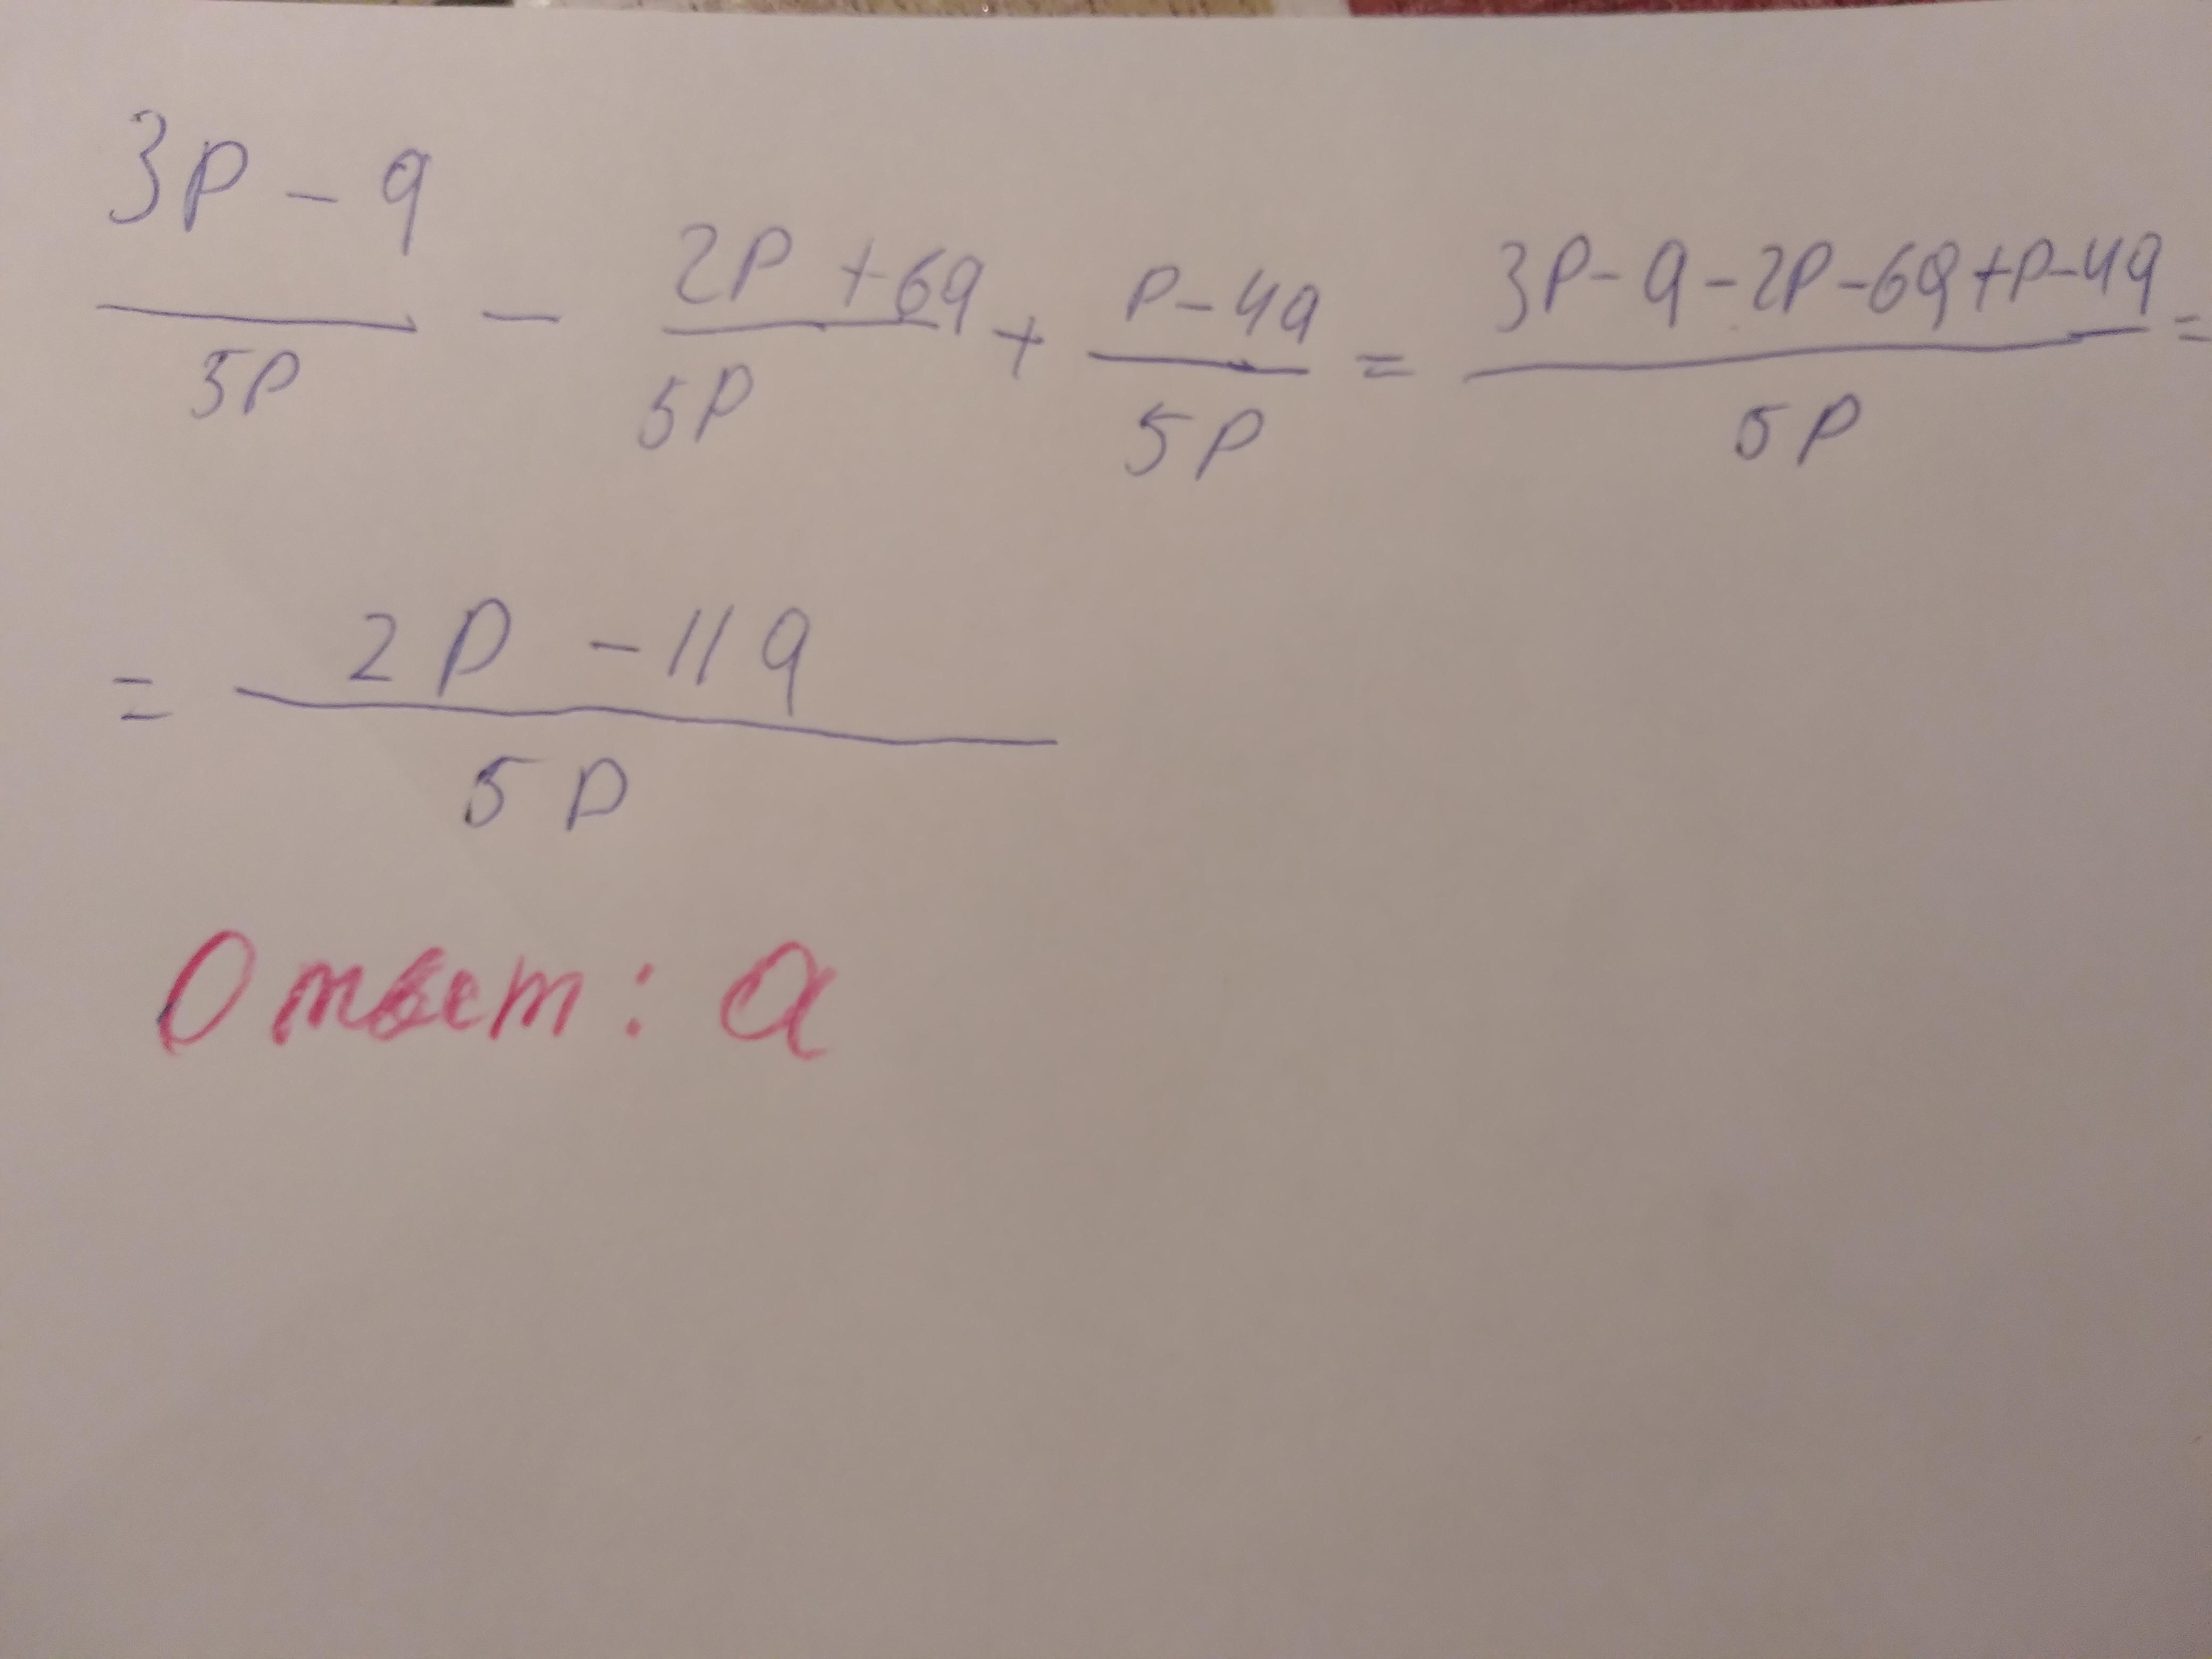 (3p - q)/(5p) - (2p + 6q)/(5p) + (p - 4q)/(5p) = (3p - q - 2p - 6q + p - 4q)/(5p) =
= (2p - 11q)/(5p)
Ответ: а